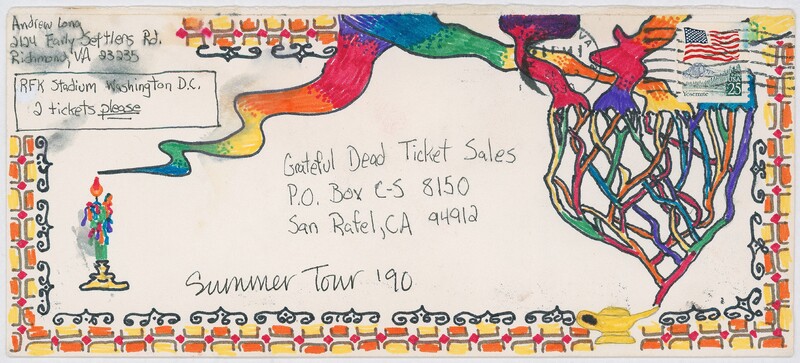 Andrew Long
2124 Early Settlers Rd.
Richmond, VA 23235
RFK Stadium Washington D.C.
2 tickets please
Grateful Dead Ticket Sales
P.O. Box C-S 8150
San Rafel, CA 94912
Summer Tour '90
VA
Yosemite
USA
25